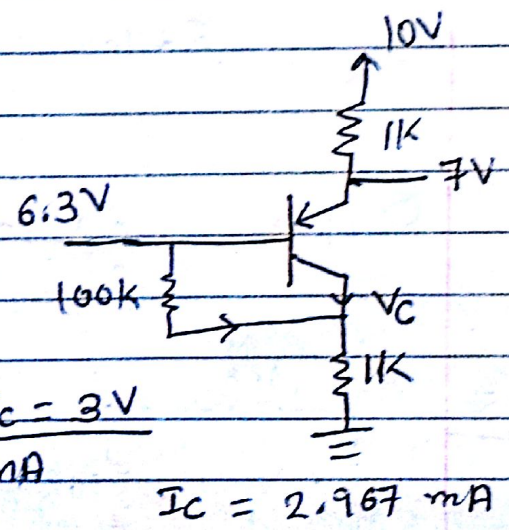 10V
1K
7V
6.3V
100K
VC
1K
c = 3V
mA
IC = 2.967 mA